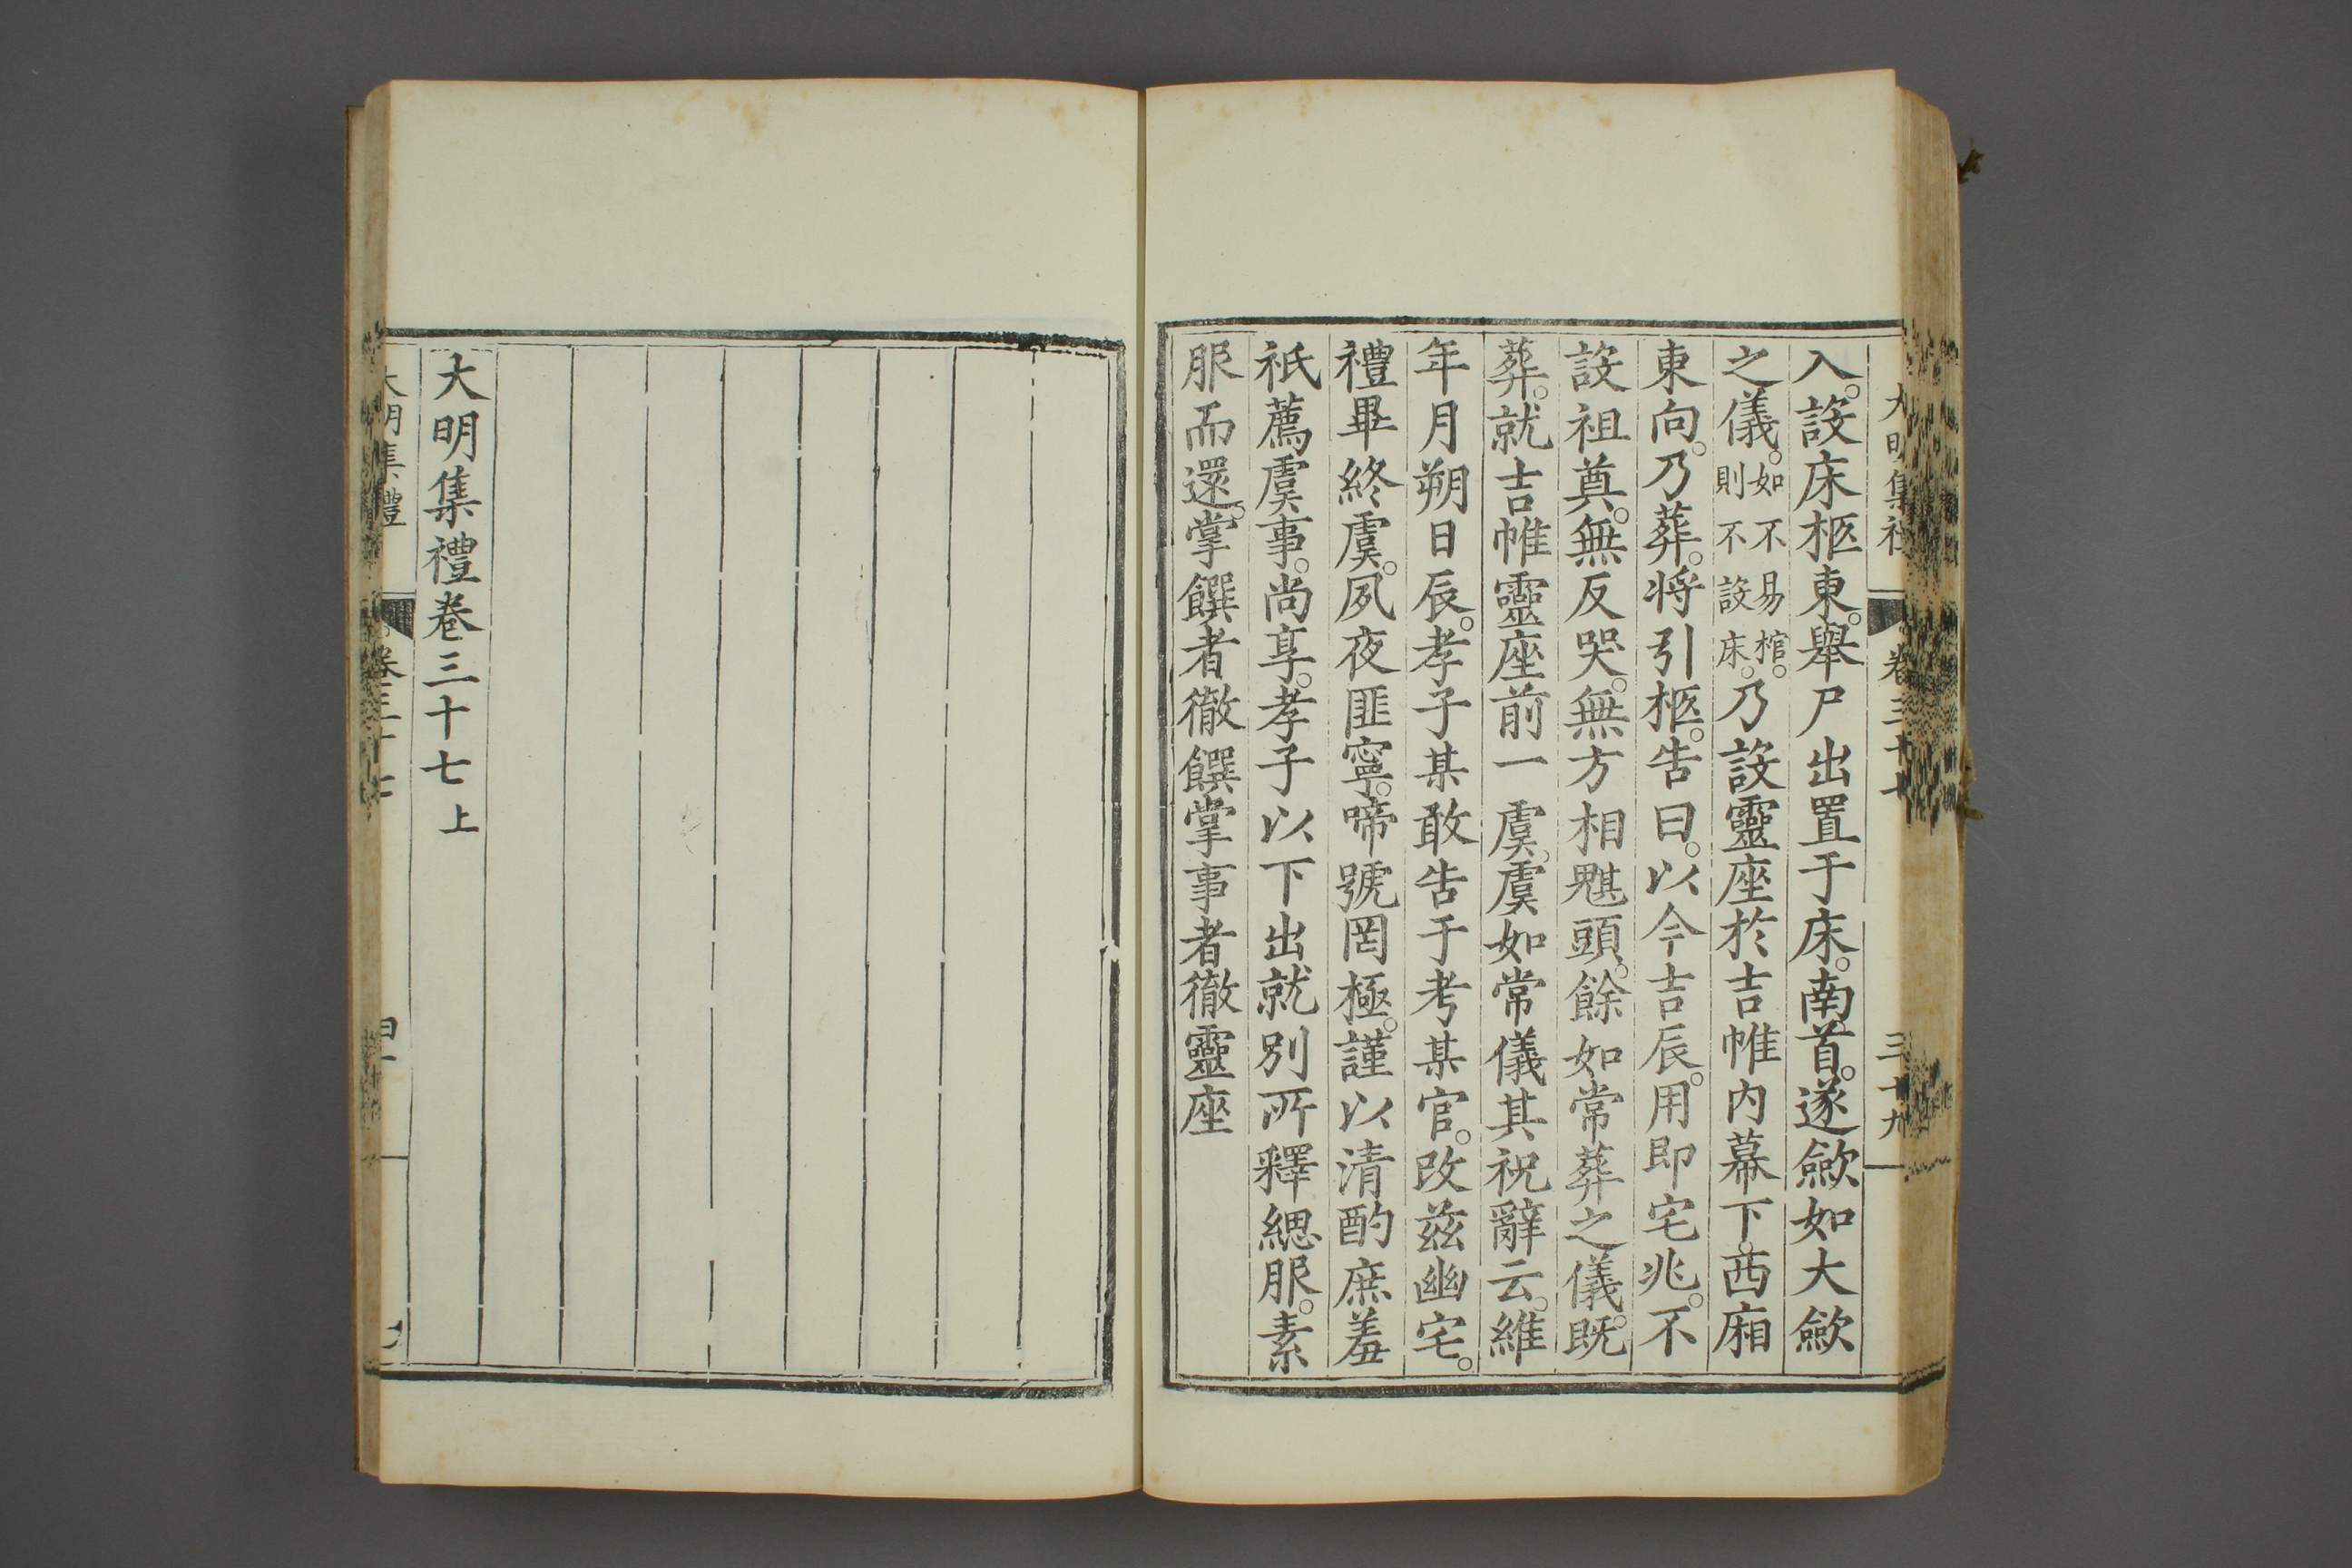 大明集禮 卷三十七 三十九
入。設床柩東。舉尸出置于床。南首。遂斂如大斂
之儀。如不易棺。則不設床。乃設靈座於吉帷内幕下。西廂
東向。乃葬。將引柩。告曰。以今吉辰。用即宅兆。不
設祖奠。無反哭。無方相魌頭。餘如常葬之儀。既
葬。就吉帷靈座前一虞。虞如常儀其祝辭云。維
年月朔日辰。孝子某敢告于考某官。改兹幽宅。
禮畢終虞。夙夜匪寧。啼號罔極。謹以清酌庶羞
祇薦虞事。尚享。孝子以下出就别所釋緦服。素
服而還。掌饌者徹饌掌事者徹靈座
大明集禮卷三十七上
大明集禮 卷三十七